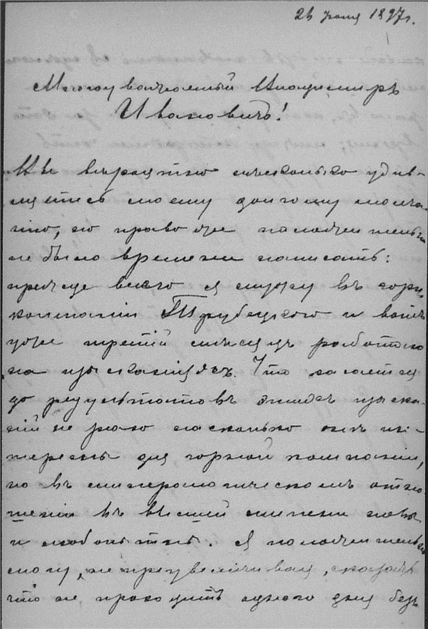 26 июня 1897г.
Многоуважаемый Владимиръ
Ивановичъ!
Вы вѣроятно нѣсколько удив-
ляетесь моему долгому молча-
нію, но право же положительно
не было времени написать:
прежде всего я служу въ горн.
компаніи Трубецкого и вотъ
уже третій мѣсяцъ работаю
на изысканіяхъ. Что касается
до результатовъ этихъ изыска-
ній не знаю насколько они ин-
тересны для горной компаніи,
но въ минералогическомъ отно-
шеніи въ высшей степени новы
и любопытны. Я положительно
могу, не преувеличивая, сказать
что не проходитъ одного дня безъ